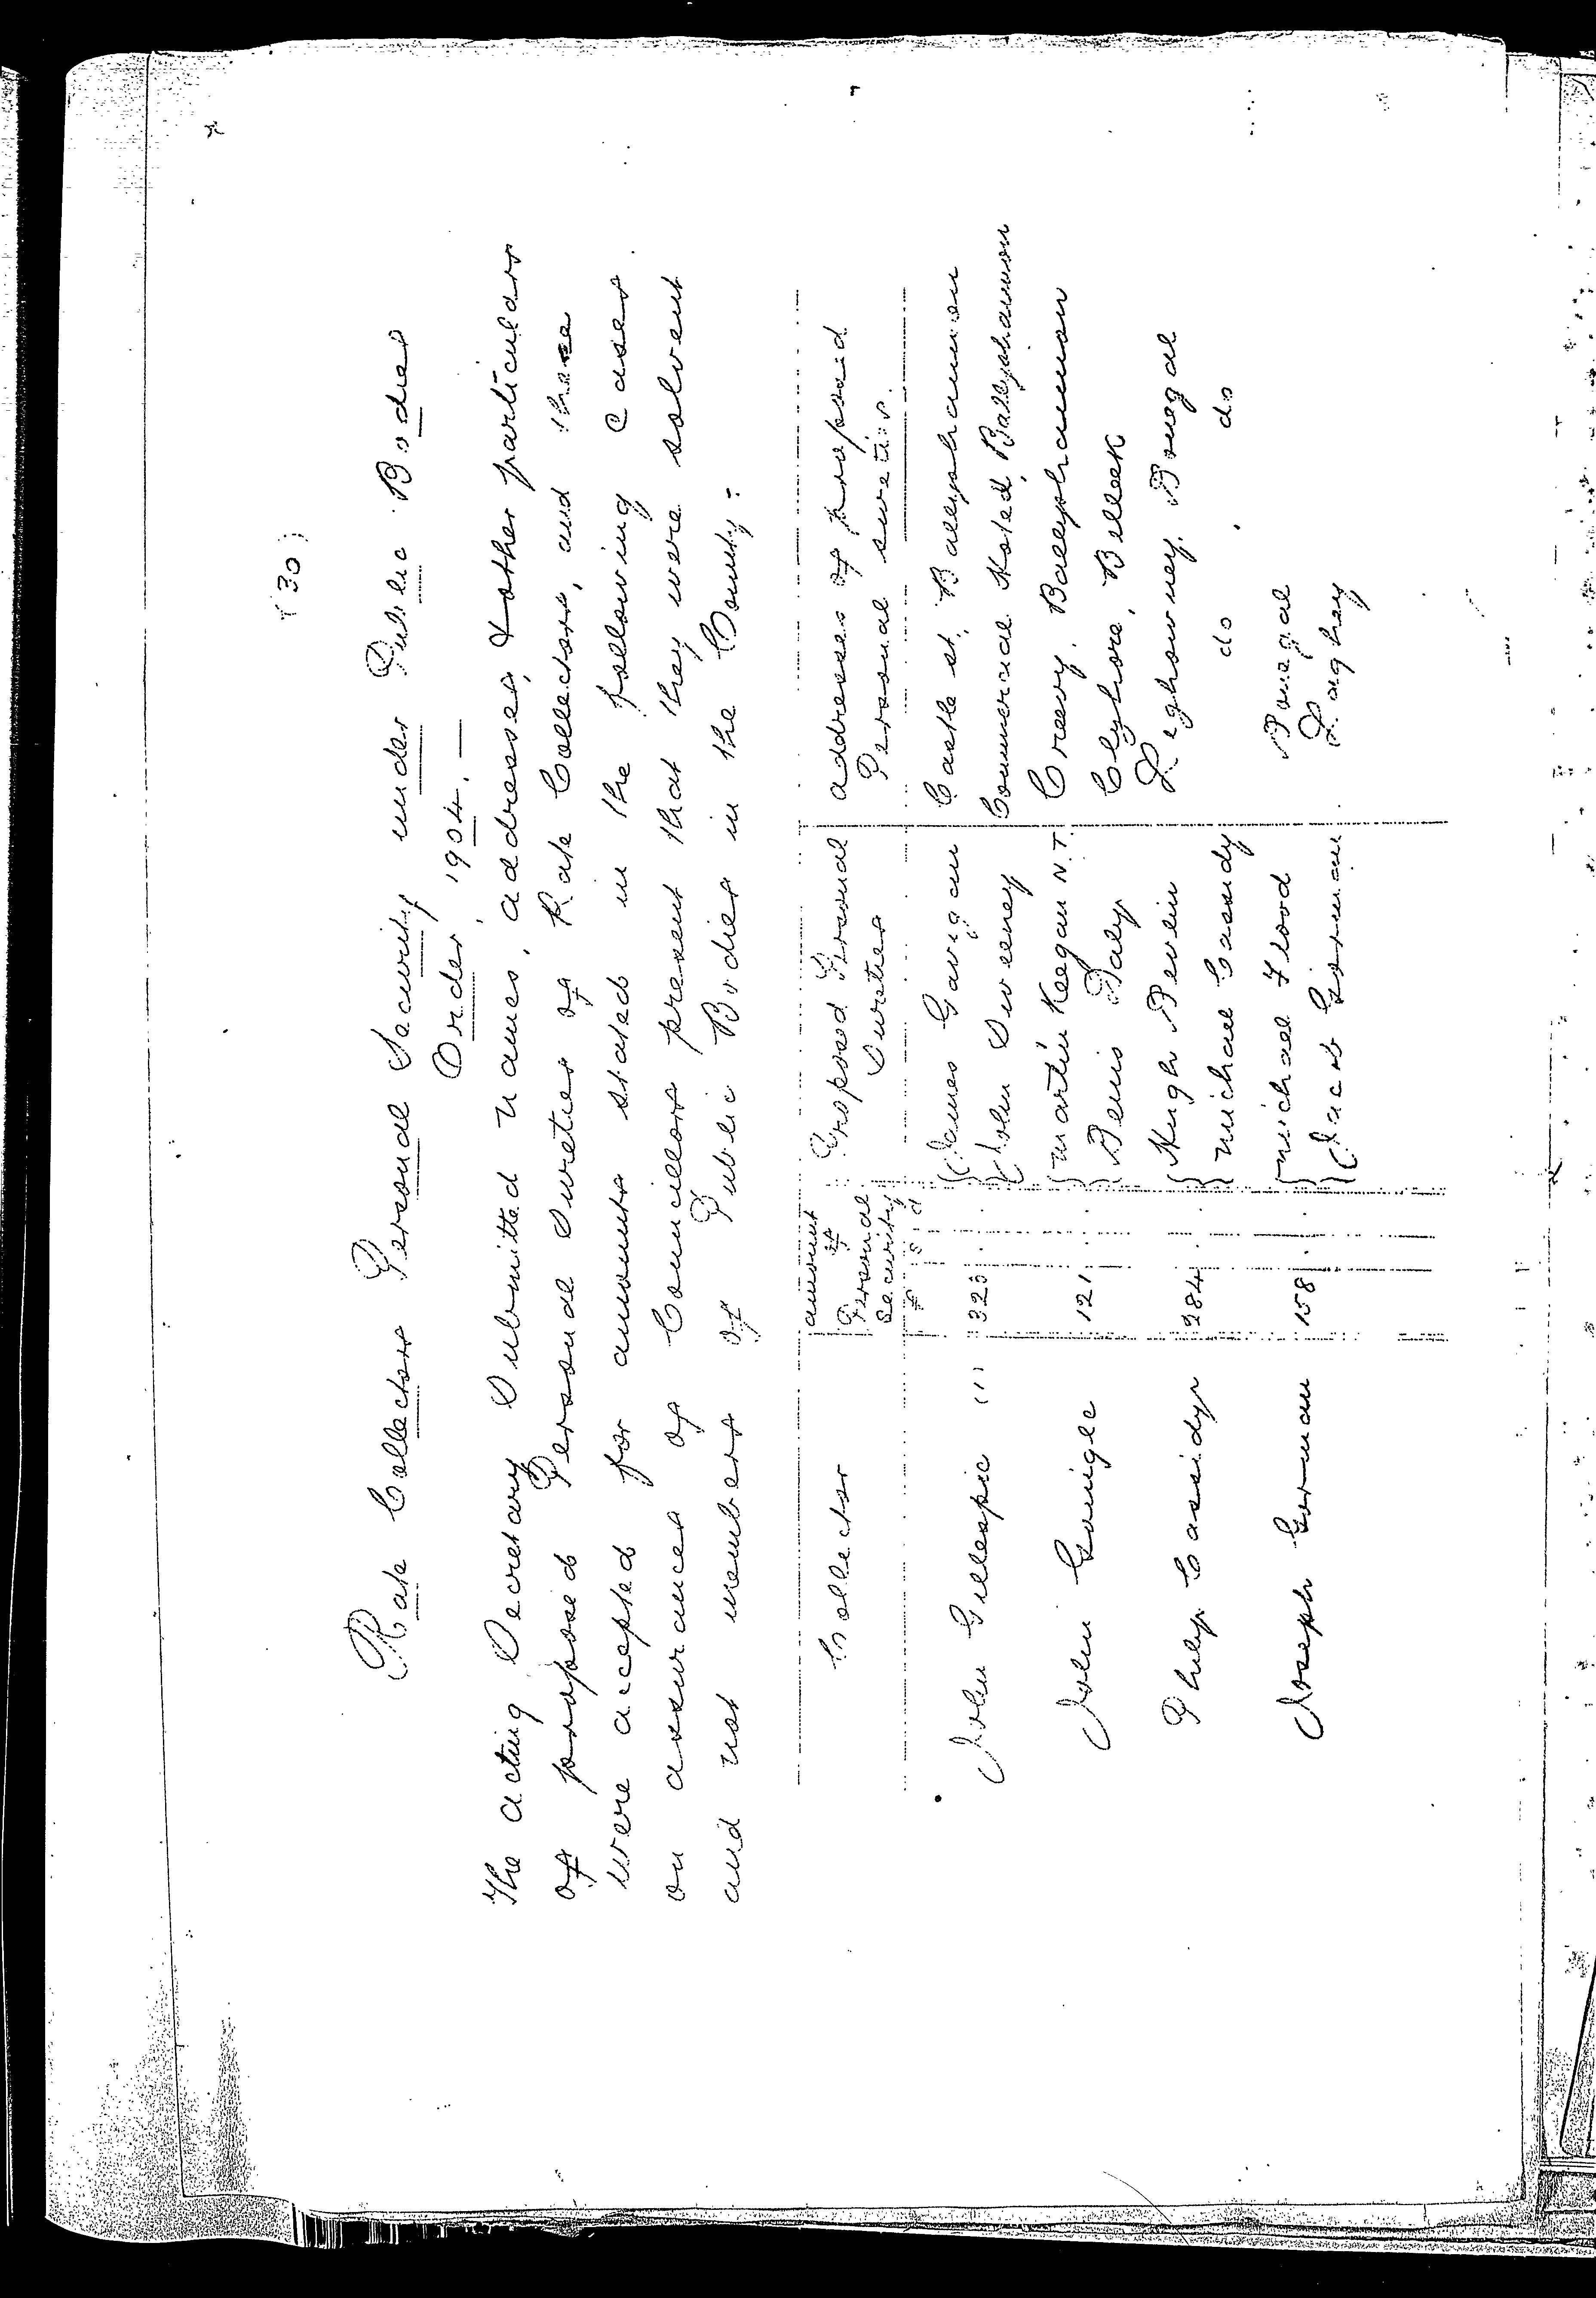 (30)
Rate Collectors Personal Security under Public Bodies
Order, 1904. —
The acting Secretary Submitted names, addresses, & other particulars
of proposed Personal Sureties of Rate Collectors, and these
were accepted for amounts stated in the following Cases
on assurances of Councillors present that they were solvent
and not members of Public Bodies in the County:-
Collector amount of Personal Security Proposed Personal Sureties addresses of proposed Personal sureties.
£ s d
John Gillespie (1) 323 James Gavigan Castle st, Ballyshannon
John Sweeney Commercial Hotel, Ballyshannon
John Gonigle 121 Martin Keegan N.T. Creevy, Ballyshannon
Denis Daly Clyhore, Belleek
Philip Cassidy 384 Hugh Devin Leghowney, Donegal
Michael Cassidy do do
Joseph Gorman 158 Michael Flood Donegal
Jacob Gorman Laghey